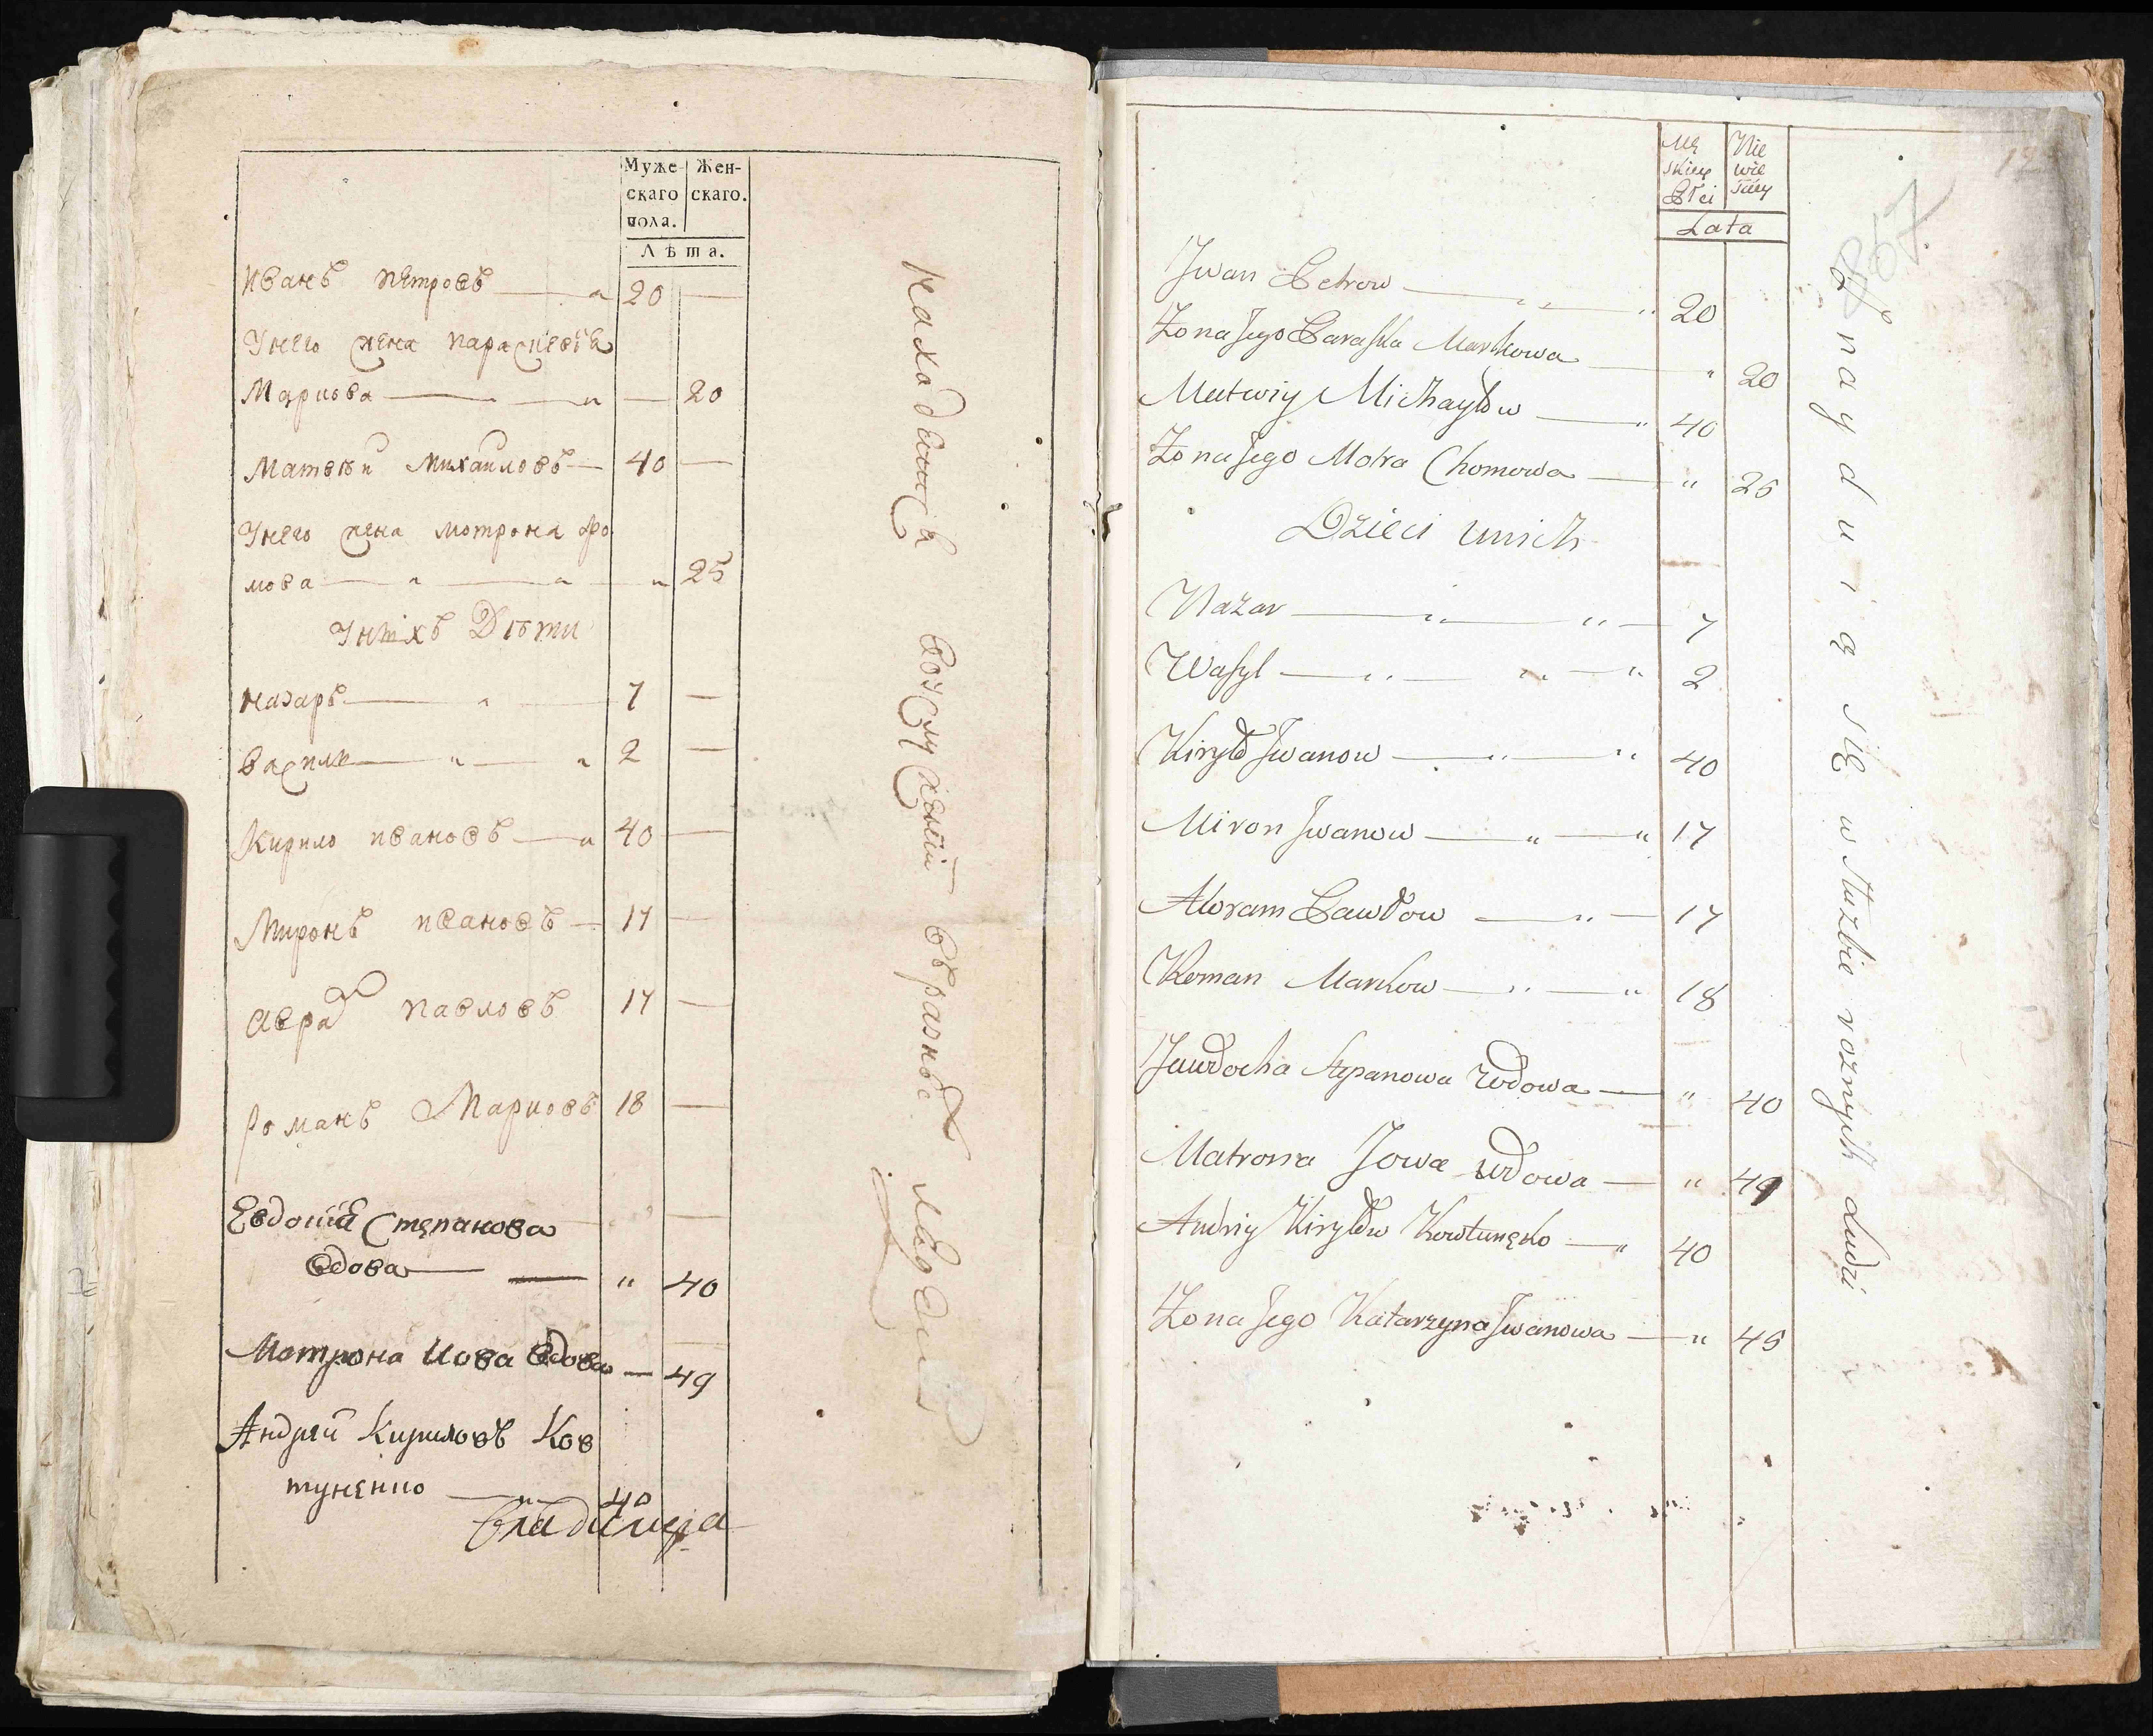 Муже- Жен-
скаго скаго.
пола.
Лѣта.
Иванъ Петровъ 20 —
Унего жена Параскевія
Маркова — 20
Матвѣй Михайловъ — 40 —
Унего жена Мотрона Хо
мова — " — " — " 25
Унихъ Дѣти
Назаръ — " — 7 —
Васили — " — " 2 —
Кирило Ивановъ — " 40 —
Миронъ Ивановъ — 17 —
Аврам Павловъ 17 —
Романъ Марковъ 18 —
Евдокія Степанова
вдова — " 40
Мотрона Иова вдова — 49
Андрей Кириловъ Ков
туненко — " — 40
Находящихся воуслуженіи вразныхъ людей
Mę Nie
skiey wie
Płci sciey
Lata
Jwan Petrow — " " 20
Zona Jego Paraska Markowa — " 20
Matwiy Michayłow — " 40
Zona Jego Motra Chomowa — " 25
Dzieci unich
Nazar — " — " — 7
Wasyl — " — " — " 2
Kiryło Jwanow — " — " 40
Miron Jwanow — " — " 17
Abram Pawłow — " — 17
Roman Markow — " — " 18
Jawdocha Stepanowa wdowa — " 40
Matrona Jowa wdowa — " 49
Andriy Kiryłow Kowtunęko — " 40
Zona Jego Katarzyna Jwanowa — " 45
Znayduią się w służbie roznych Ludzi
867